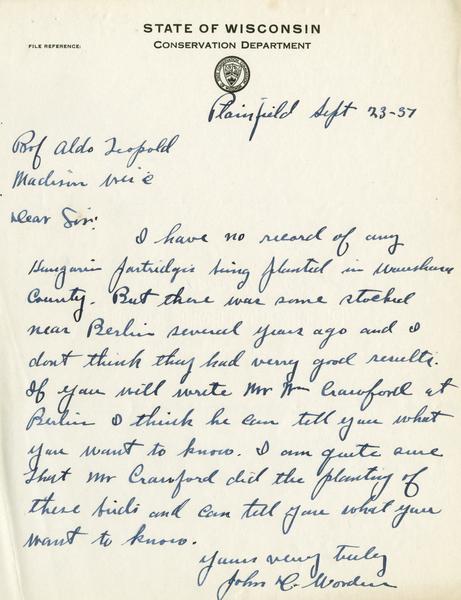 STATE OF WISCONSIN
FILE REFERENCE:
CONSERVATION DEPARTMENT
Plainfield Sept 23-37
Prof Aldo Leopold
Madison Wis
Dear Sir:
I have no record of any
Hungarin partridgis being planted in Waushara
County. But there was some stocked
near Berlin several years ago and I
dont think they had verry good results.
If you will write Mr Wm Crawford at
Berlin I think he can tell you what
you want to know. I am quite sure
that Mr Crawford did the planting of
these birds and can tell you what you
want to know.
Yours very truly
John C. Worden